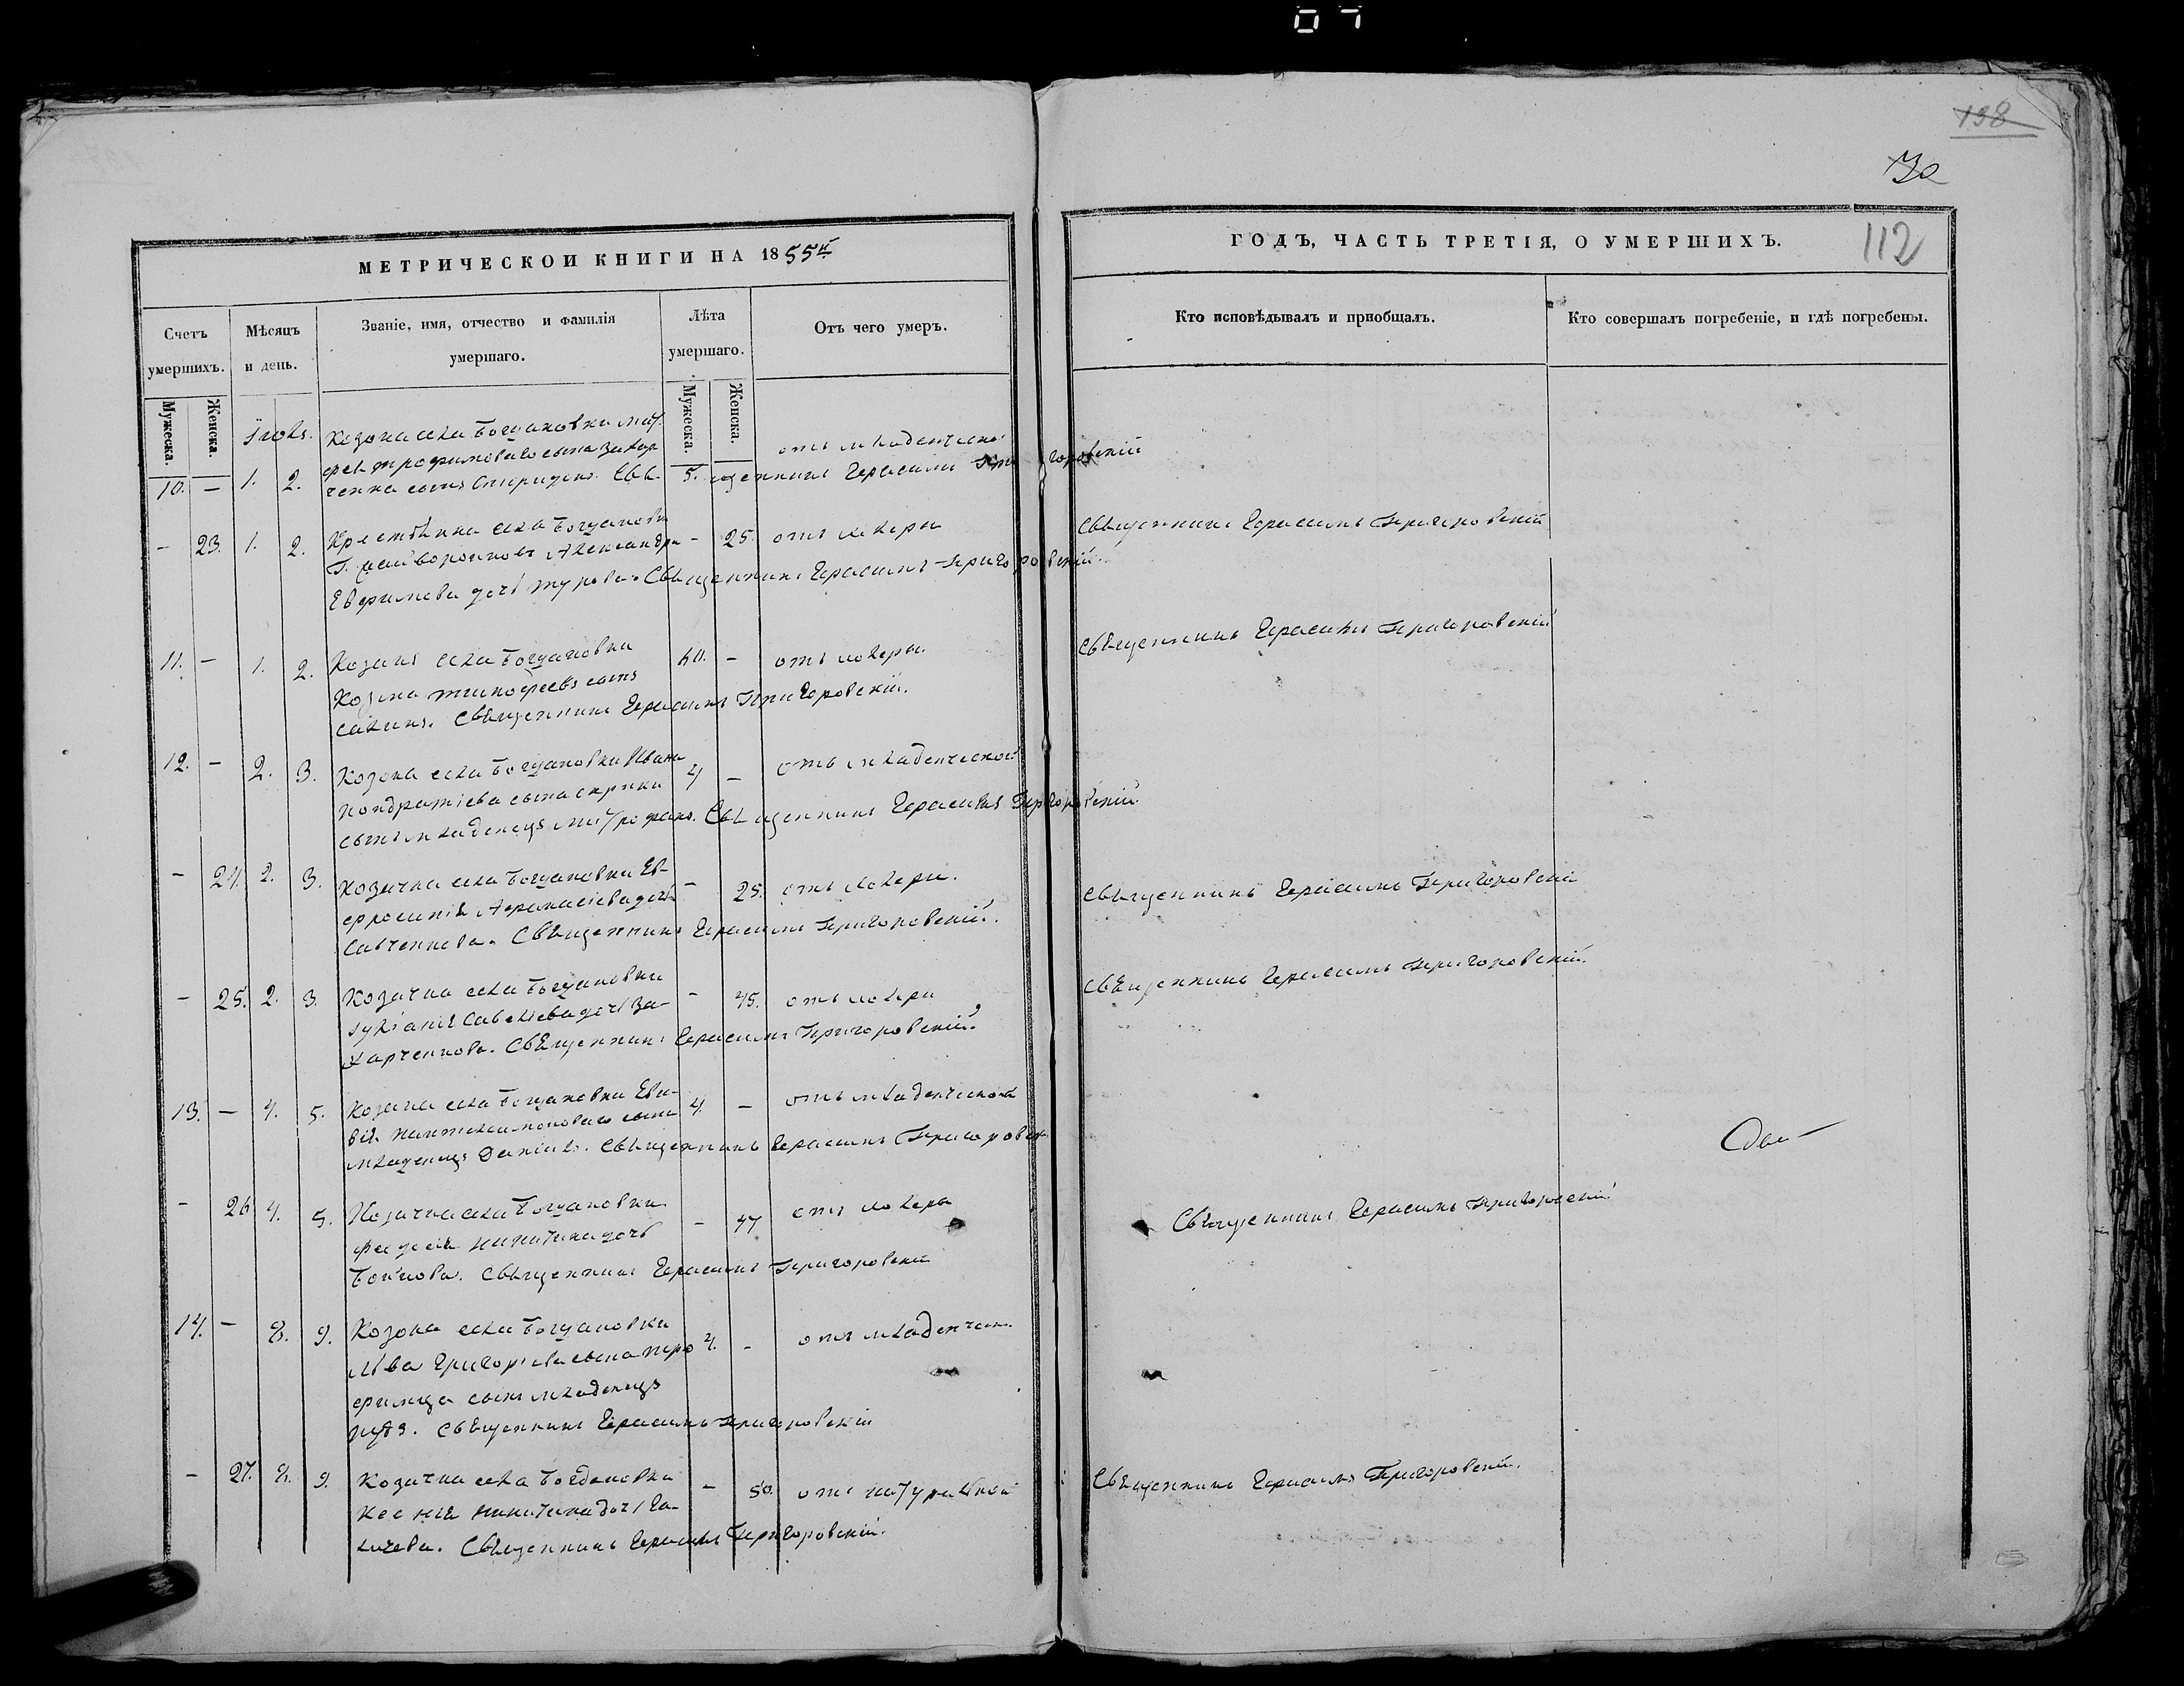 138
70
МЕТРИЧЕСКОЙ КНИГИ НА 1855й
ГОДЪ, ЧАСТЬ ТРЕТІЯ, О УМЕРШИХЪ.
112
Счетъ умершихъ.
Мѣсяцъ и день.
Званіе, имя, отчество и фамилія умершаго.
Лѣта умершаго.
Отъ чего умеръ.
Кто исповѣдывалъ и пріобщалъ.
Кто совершалъ погребеніе, и гдѣ погребены.
Мужеска.
Женска.
Мужеска.
Женска.
Іюль.
Козака села Богдановки
трофимоваго сына Захар
10. — 1. 2. ченка сынъ Спиридонъ. 5. отъ младенческой
Священникъ Герасимъ Григоровскій
— 23. 1. 2. села Богдановки — 25. отъ холеры Священникъ Герасимъ Григоровскій
Александра
Евфимова дочь Священникъ Герасимъ Григоровскій.
11. — 1. 2. Козакъ села Богдановки 60. — отъ холеры. Священникъ Герасимъ Григоровскій
Козма тимофеевъ сынъ
Священникъ Герасимъ Григоровскій.
12. — 2. 3. Козака села Богдановки Ивана 4 — отъ младенческой
кондратіева сына
сынъ младенецъ митрофанъ. Священникъ Герасимъ Григоровскій
— 24. 2. 3. Козачка села Богдановки Ев- — 25. отъ холеры. Священникъ Герасимъ Григоровскій
фросинія Афанасіева дочь
Савченкова. Священникъ Герасимъ Григоровскій.
— 25. 2. 3. Козачка села Богдановки — 45. отъ холеры Священникъ Герасимъ Григоровскій.
Савеліева дочь За-
харченкова. Священникъ Герасимъ Григоровскій.
13. — 4. 5. Козака села Богдановки 4. — отъ младенческой
сына
младенецъ Даніилъ. Священникъ Герасимъ Григоровскій
— 26 4. 5. Козачка села Богдановки — 47 отъ холеры Священникъ Герасимъ Григоровскій
Феодосія никитина дочь
Бойкова. Священникъ Герасимъ Григоровскій
14. — 8. 9. Козака села Богдановки
Льва Григорьева сына тро 4. — отъ младенческ.
фимца сынъ младенецъ
Священникъ Герасимъ Григоровскій
— 27. 8. 9. Козачка села Богдановки — 50. отъ натуральной Священникъ Герасимъ Григоровскій.
Ксенія никитина дочь Га-
личева. Священникъ Герасимъ Григоровскій.